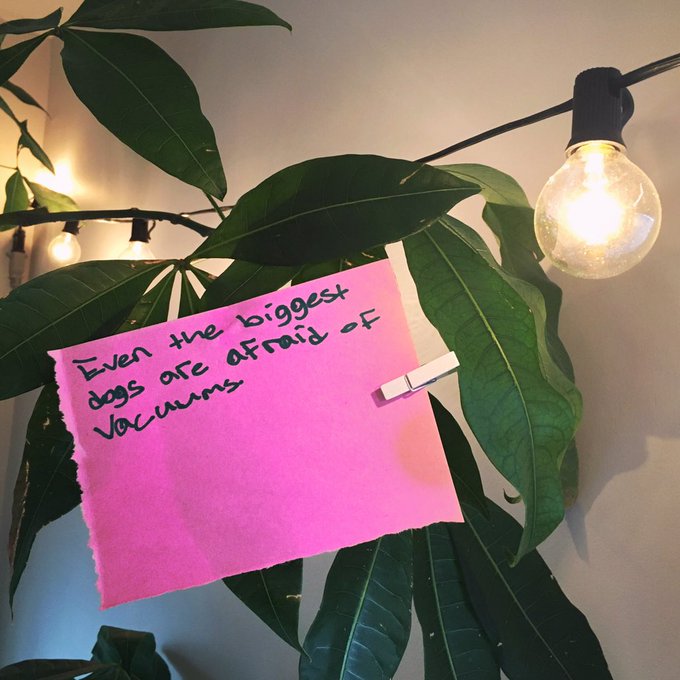 Even the biggest
dogs are afraid of
vacuums.